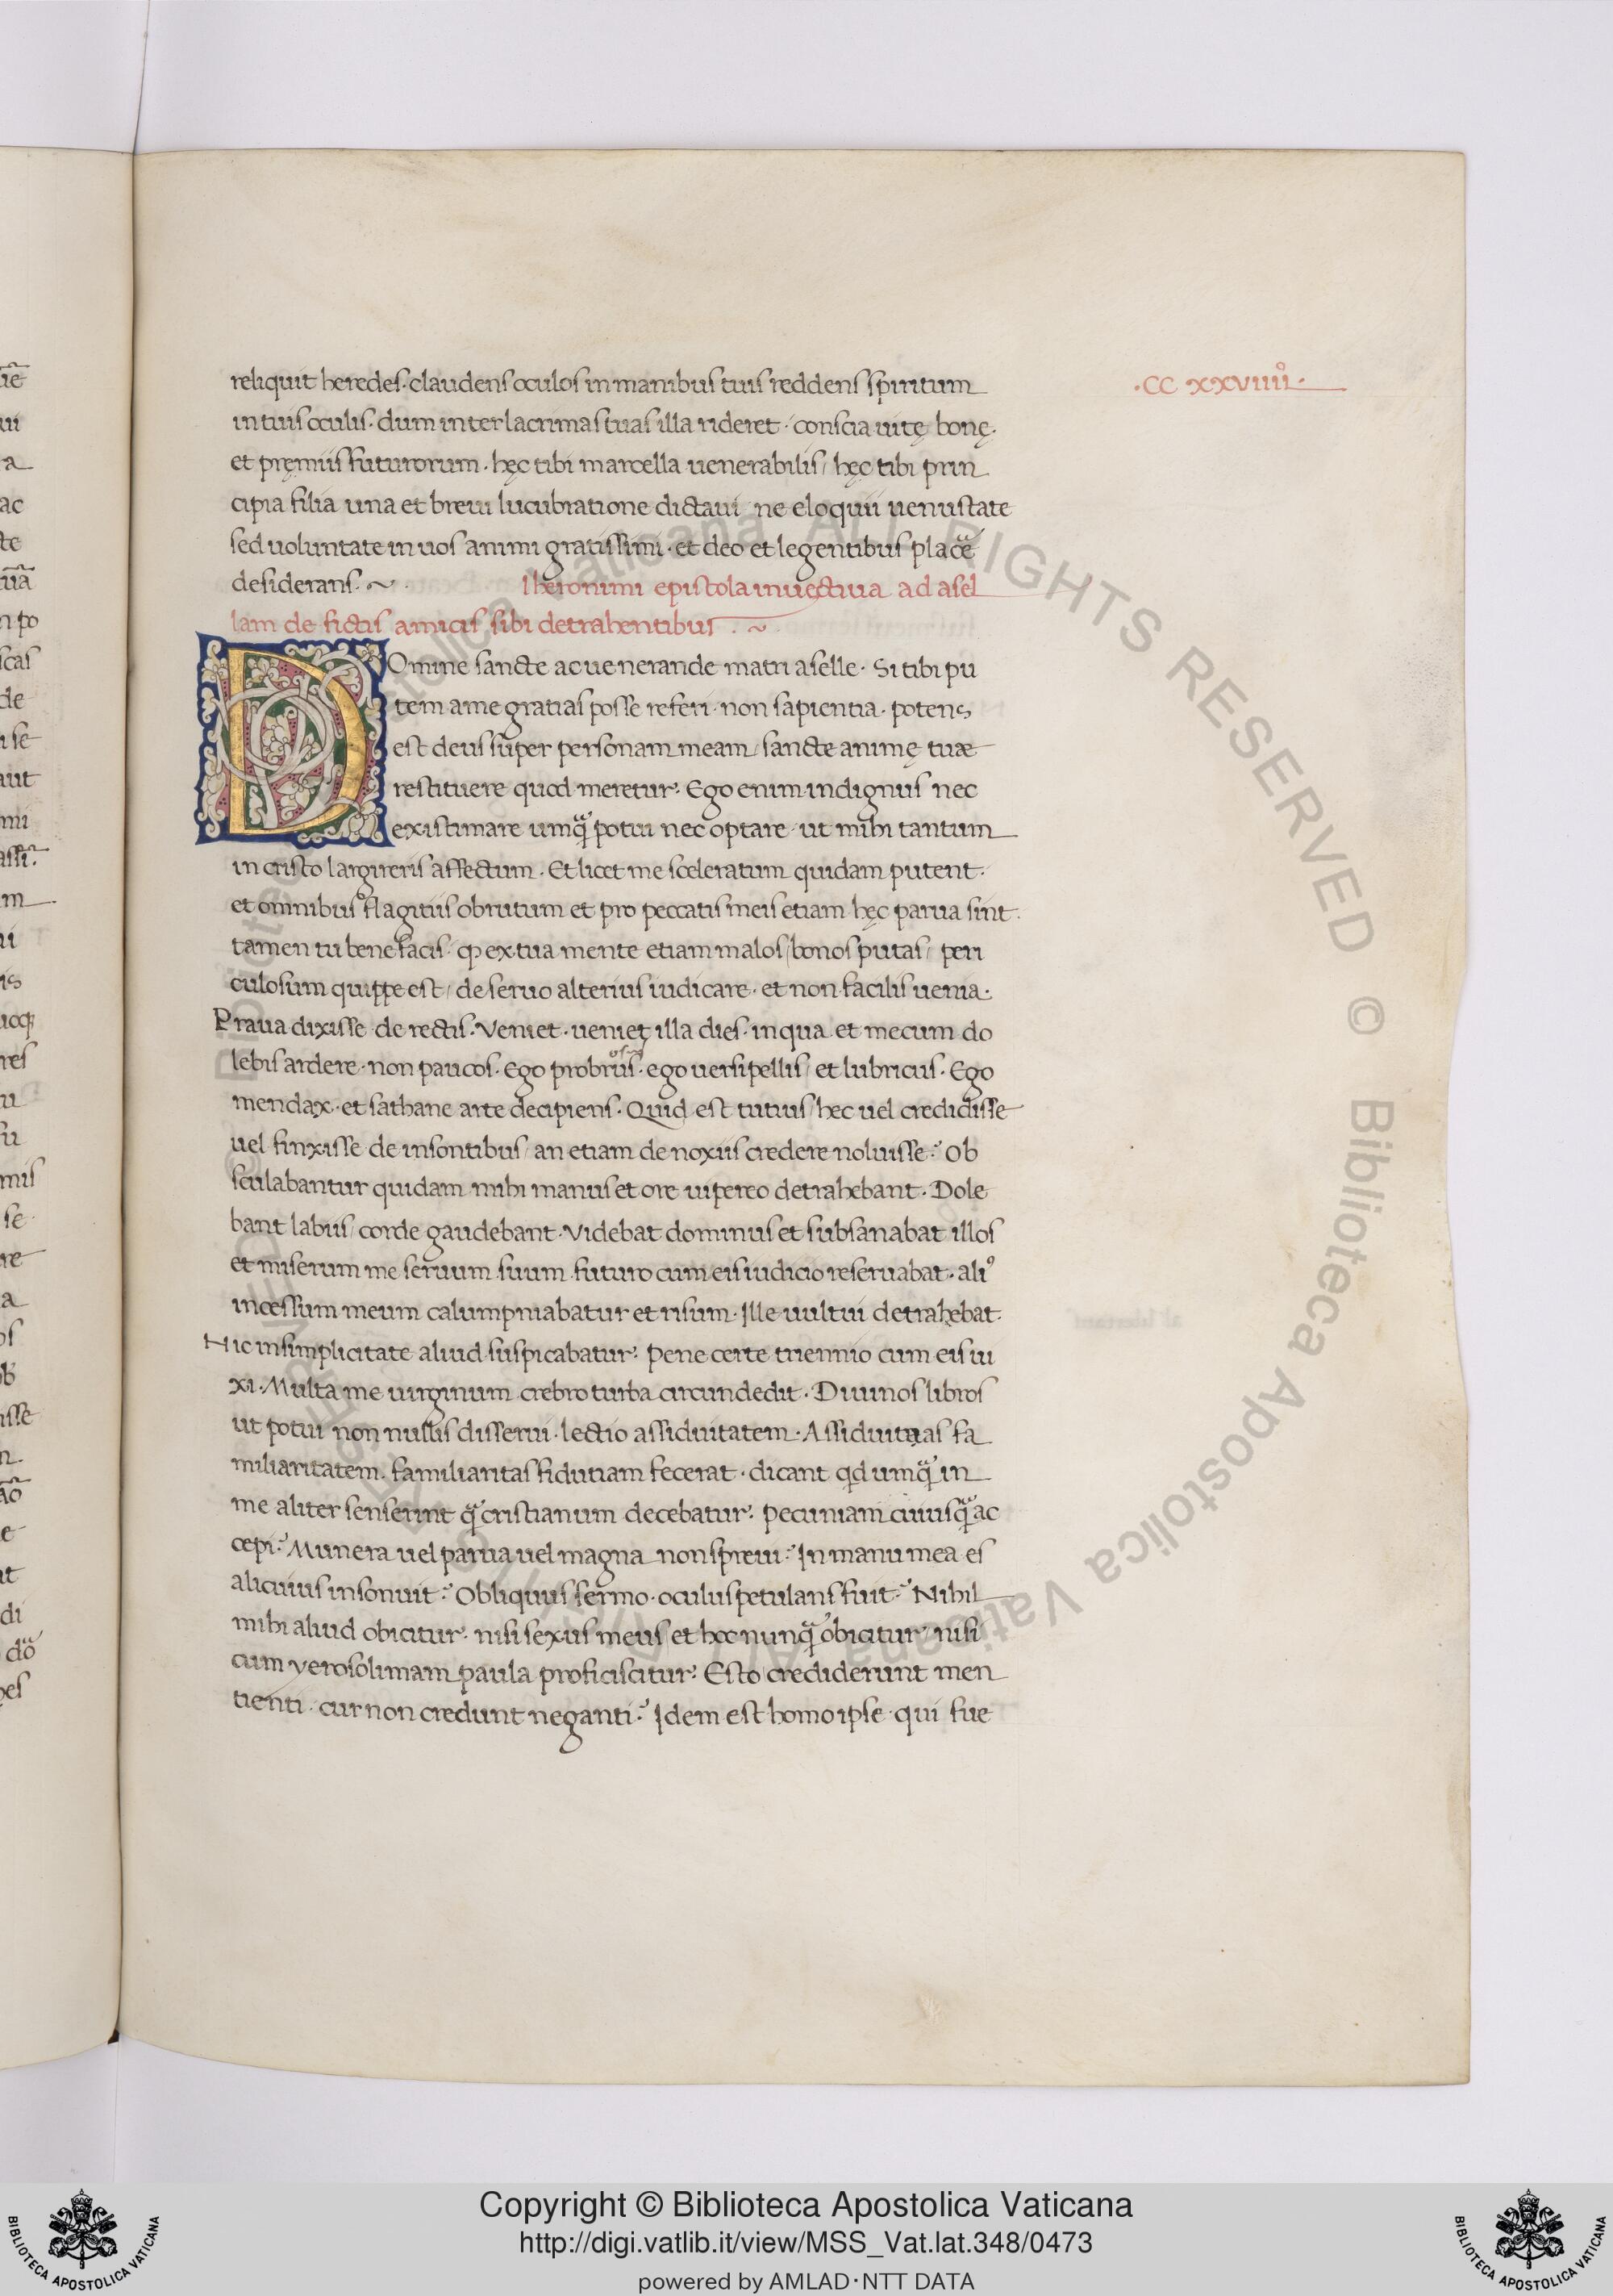 reliquit heredes. claudens oculos in manibus tuis reddens spiritum
.CC XXVIIII.
in tuis oculis. dum inter lacrimas tuas illa rideret. conscia uitę bonę.
et pręmiis futurorum. hęc tibi marcella uenerabilis/ hęc tibi prin
cipia filia una et breui lucubratione dictaui. ne eloquii uenustate
sed uoluntate in uos animi gratissimi. et deo et legentibus placē
desiderans. ~
Iheronimi epistola inuectiua ad asel
lam de fictis amicis sibi detrahentibus. ~
DOmine sancte ac uenerande matri aselle. Si tibi pu
tem a me gratias posse referi. non sapientia. potens
est deus super personam meam/ sancte animę tuæ
restituere quod meretur. Ego enim indignus nec
existimare umqᷓ potui nec optare. ut mihi tantum
in cristo largireris affectum. Et licet me sceleratum quidam putent.
et omnibus flagitiis obrutum et pro peccatis meis etiam hęc parua sint.
tamen tu bene facis. ꝙ ex tua mente etiam malos/ bonos putas/ peri
culosum quippe est/ de seruo alterius iudicare. et non facilis uenia.
Praua dixisse de rectis. Veniet. ueniet illa dies. in qua et mecum do
lebis ardere. non paucos. Ego probrus. ego uersipellis/ et lubricus. Ego
mendax. et sathane arte decipiens. Quid est tutius/ hec uel credidisse
uel finxisse de insontibus/ an etiam de noxiis credere noluisse? Ob
sculabantur quidam mihi manus et ore uipereo detrahebant. Dole
bant labiis/ corde gaudebant. Videbat dominus et subsanabat illos
et miserum me seruum suum futuro cum eis iudicio reseruabat. ali⁹
incessum meum calumpniabatur et risum. Ille uultui detrahebat.
Hic in simplicitate aliud suspicabatur. Pene certe triennio cum eis ui
xi. Multa me uirginum crebro turba circundedit. Diuinos libros
ut potui non nullis disserui. lectio assiduitatem. Assiduitas fa
miliaritatem. familiaritas fidutiam fecerat. dicant qd umqᷓ in
me aliter senserint qᷓ cristianum decebatur. Pecuniam cuiusqᷓ ac
cepi? Munera uel parua uel magna non spreui? In manu mea es
alicuius insonuit? Obliquus sermo. oculus petulans fuit? Nihil
mihi aliud obicitur. nisi sexus meus et hoc nunqᷓ obicitur/ nisi
cum yerosolimam paula proficiscitur. Esto crediderunt men
tienti. cur non credunt neganti? Idem est homo ipse qui fue
Copyright © Biblioteca Apostolica Vaticana
http://digi.vatlib.it/view/MSS_Vat.lat.348/0473
powered by AMLAD·NTT DATA
BIBLIOTECA APOSTOLICA VATICANA
BIBLIOTECA APOSTOLICA VATICANA